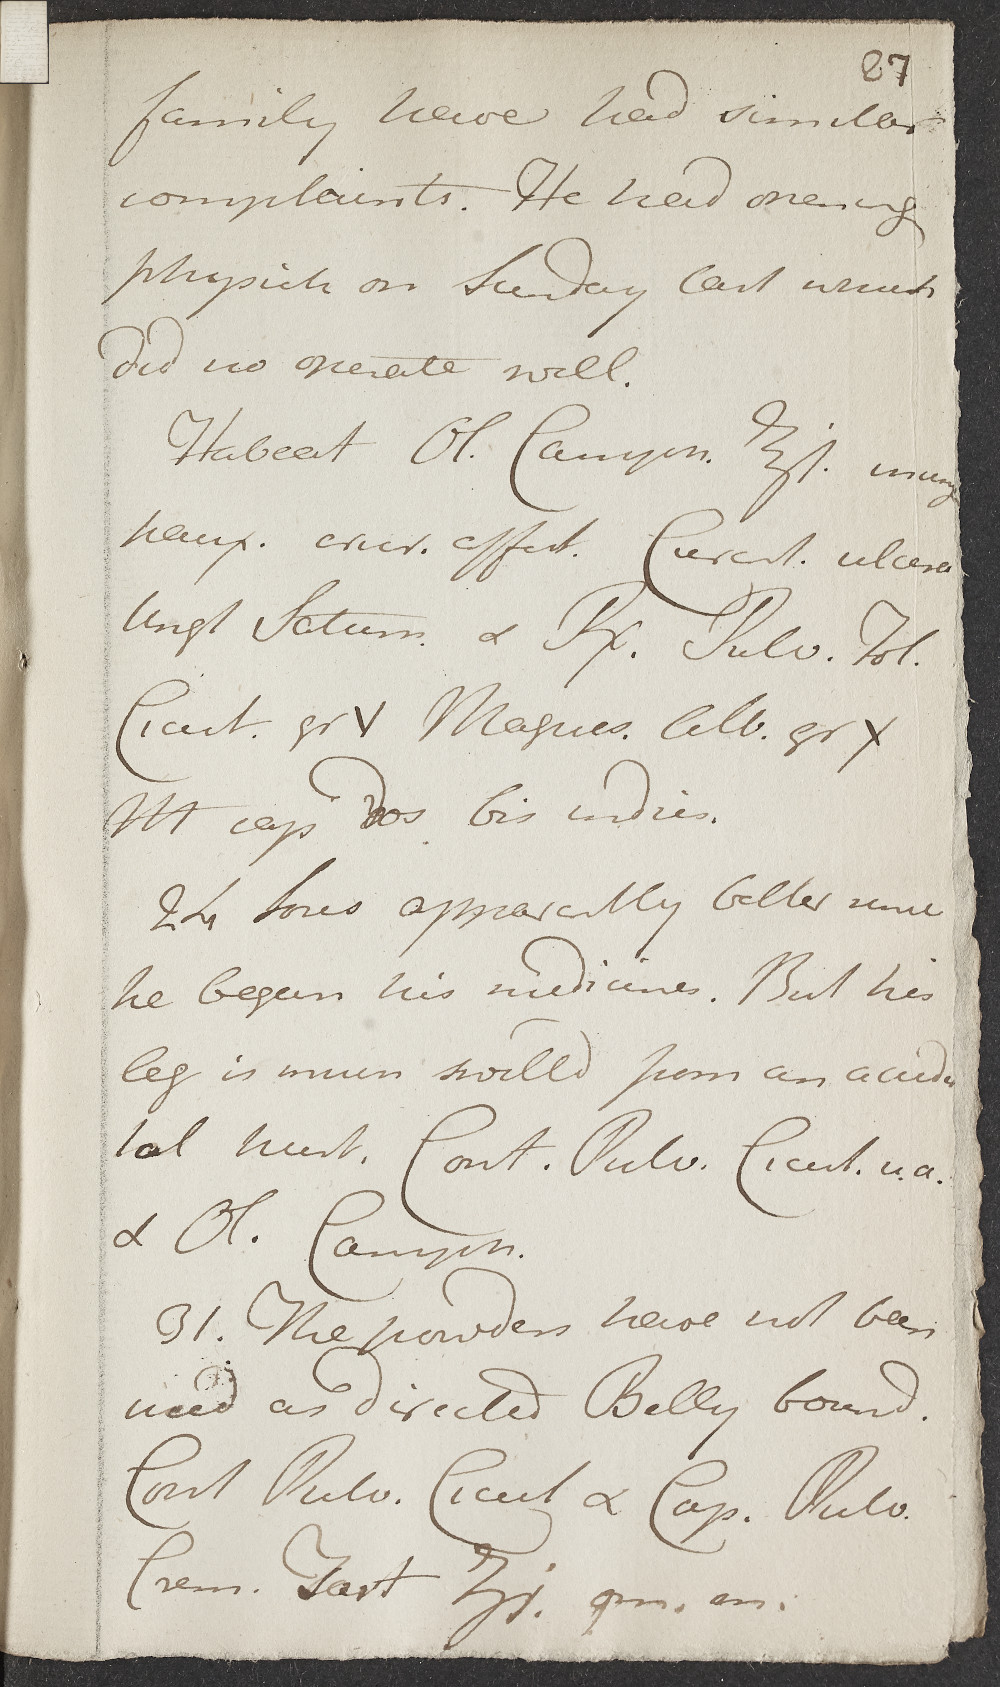 87
family have had similar
complaints. He had opening
physick on Sunday last which
did no operate well.
Habeat Ol. Camphr. ℥ß.
crur. affect. Curent. ulcera
Ungt Saturn. & Rx. Pulv. Fol.
Cicut. gr V Magnes. alb. gr X
Mt cap dos bis indies.
24 Sores apparently better since
he began his medicines. But his
leg is much swelld from an acciden
tal hurt. Cont. Pulv. Cicut. u.a.
& Ol. Camphr.
31. The powders have not been
used as directed Belly bound.
Cont Pulv. Cicut & Cap. Pulv.
Crem. Tart ʒj. om. m.